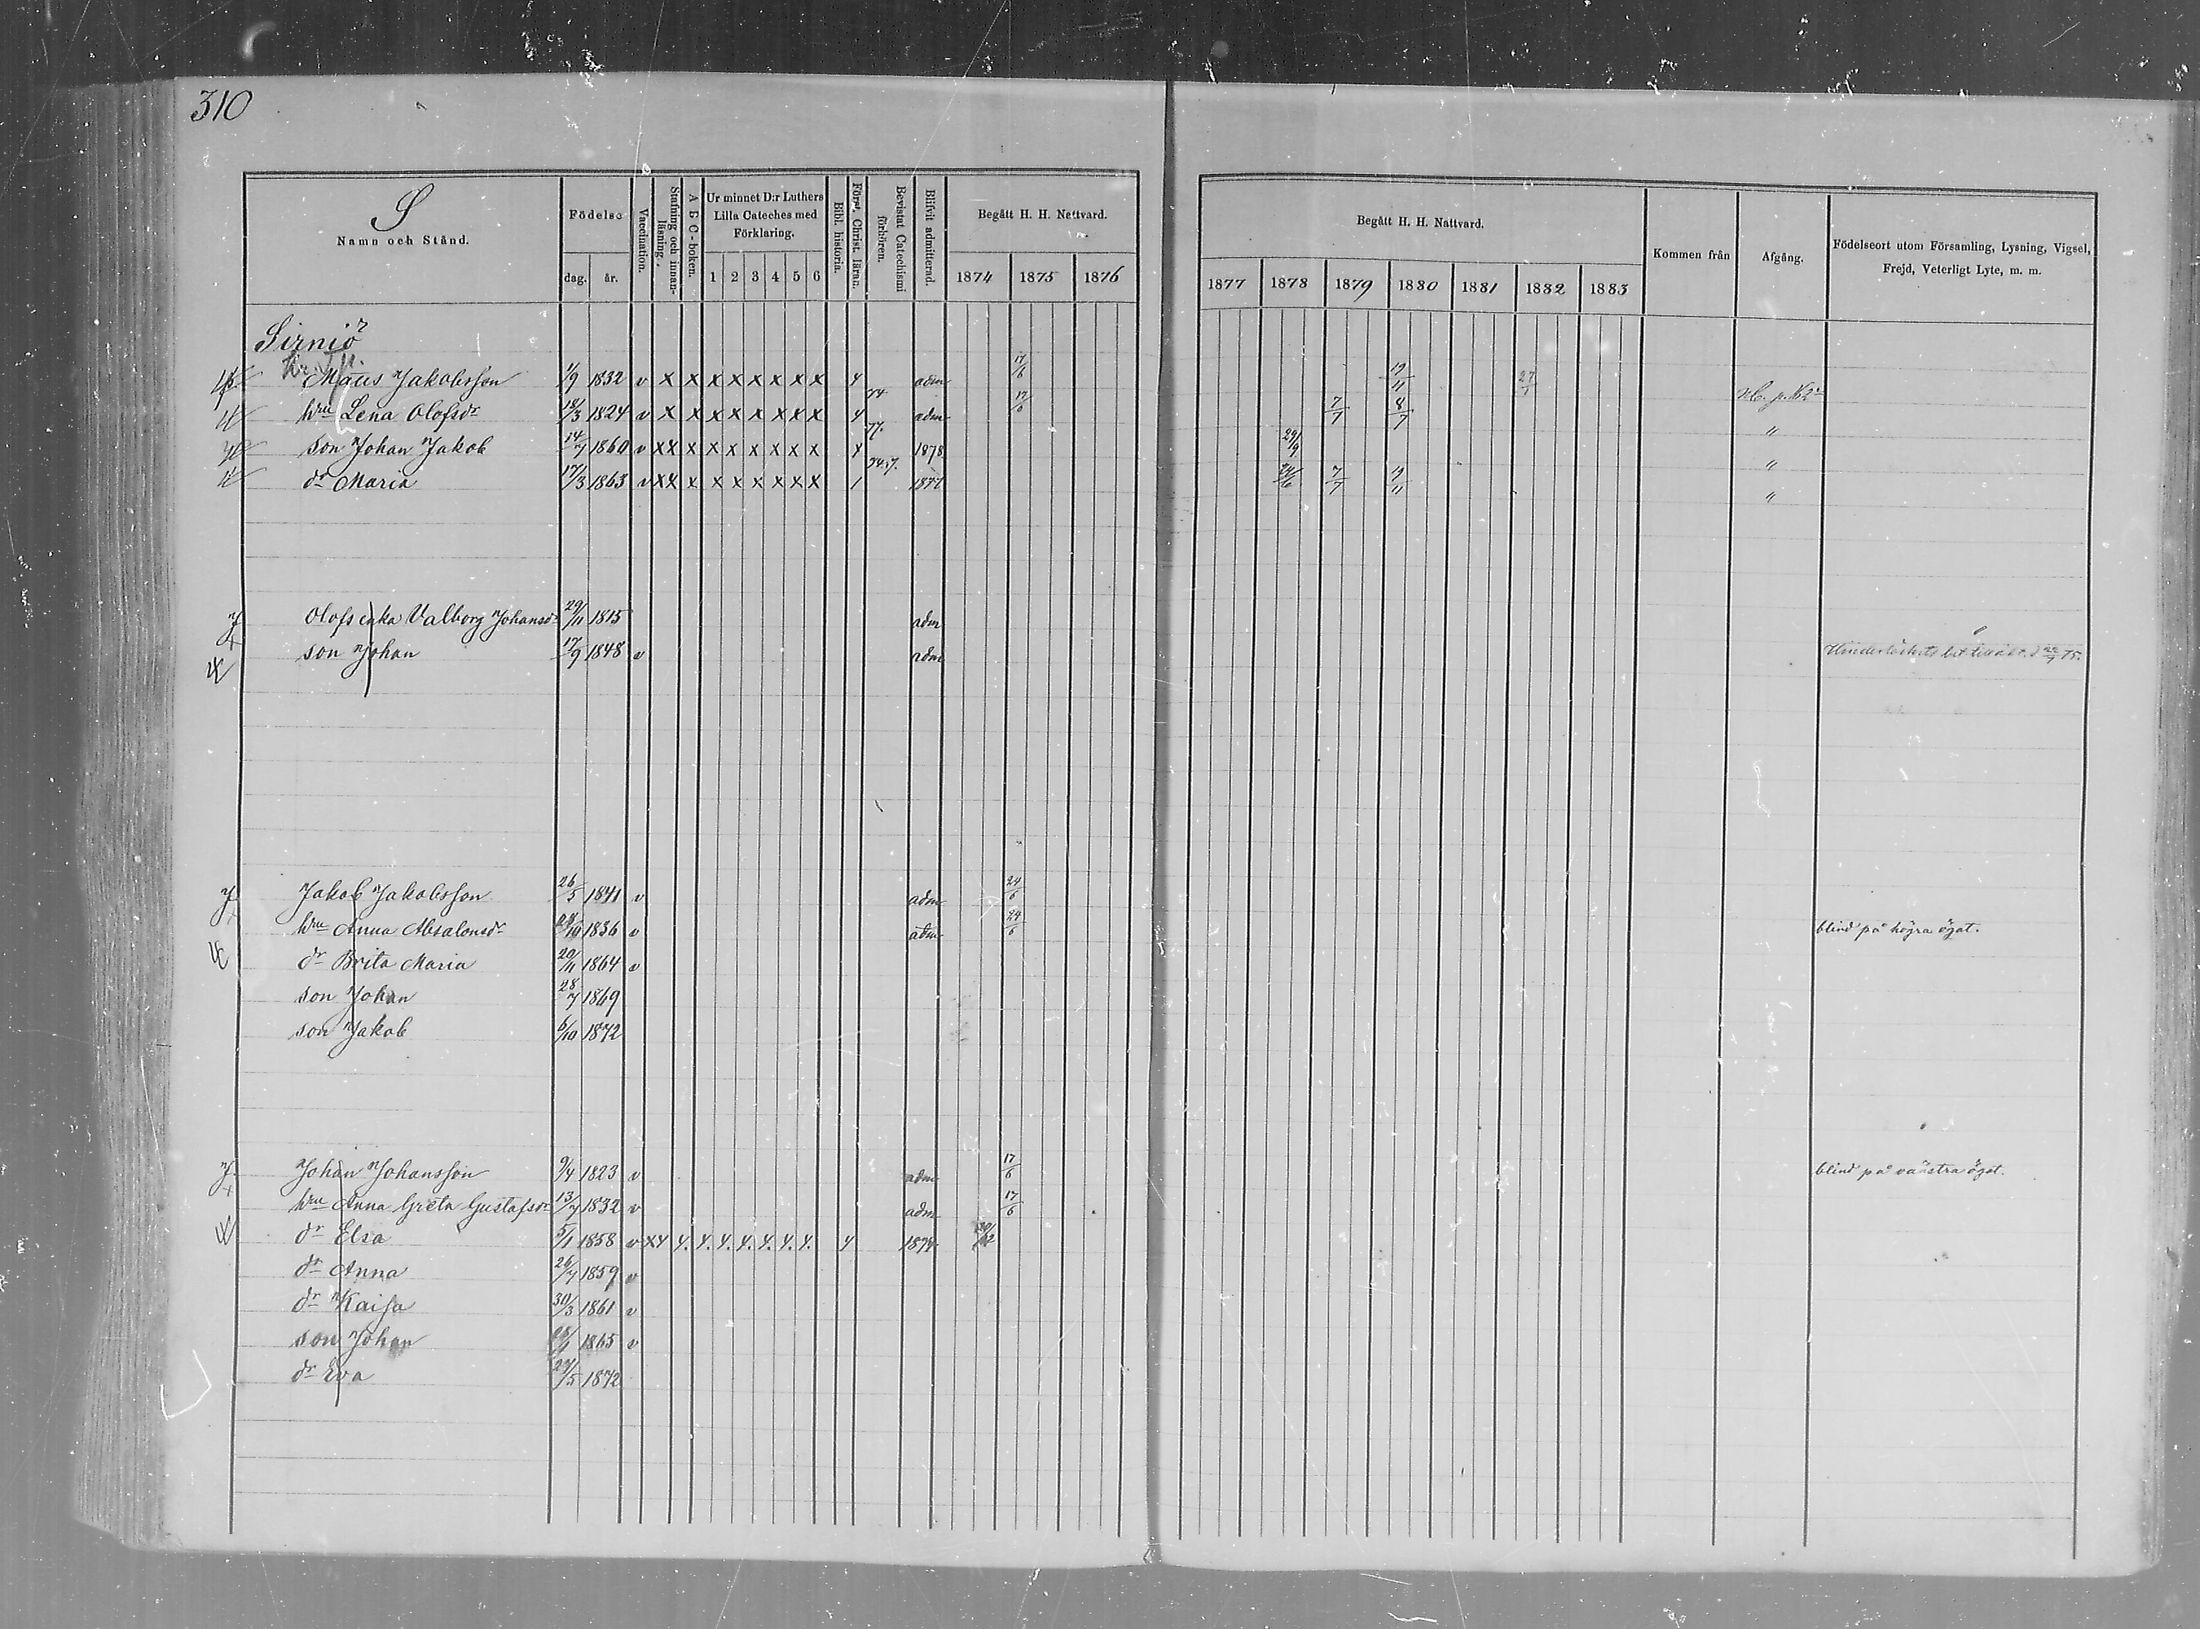 310
S
Namn och Stånd.
Födelse
dag. år.
Vaccination.
Stafning och innan-läsning.
A B C-boken.
Ur minnet D:r Luthers Lilla Cateches med Förklaring.
1 2 3 4 5 6
Bibl. historia.
Bevistat Catechismi förhören.
Blifvit admitterad.
Begått H. H. Nattvard.
1874 1875 1876
Begått H. H. Nattvard.
1877 1878 1879 1880 1881 1882 1883
Kommen från
Afgång.
Födelseort utom Församling, Lysning, Vigsel, Frejd, Veterligt Lyte, m. m.
Sirniö
Mats Jakobsson 1/9 1832 v x x x x x x x x 4 adm 17/6 19/11 27/7
74
hru Lena Olofsdr 18/3 1824 v x x x x x x x x 4 adm 17/6 7/7 8/7 "
77.
son Johan Jakob 14/7 1860 v xx x x x x x x x 4 1878 29/9 "
dr Maria 17/3 1863 v xx x x x x x x x 1 1877 24/6 7/7 9/11 "
Olofs enka Valborg Johansdr 29/11 1815 adm
son Johan 17/9 1848 v adm
Jakob Jakobsson 26/5 1841 v adm 24/6
hru Anna Absalonsdr 1836 v adm 24/6 blind på högra ögat.
dr Brita Maria 20/11 1864 v
son Johan 28/7 1869
son Jakob 6/10 1872
Johan Johansson 9/4 1823 v adm 17/6 blind på vänstra ögat.
hru Anna Greta Gustafsdr 13/7 1832 v adm 17/6
dr Elsa 5/1 1858 v x4 4. 4. 4. 4. 4. 4. 4. 4 1874
dr Anna 26/7 1859 v
dr Kaisa 30/3 1861 v
son Johan 1865 v
dr Eva 29/5 1872